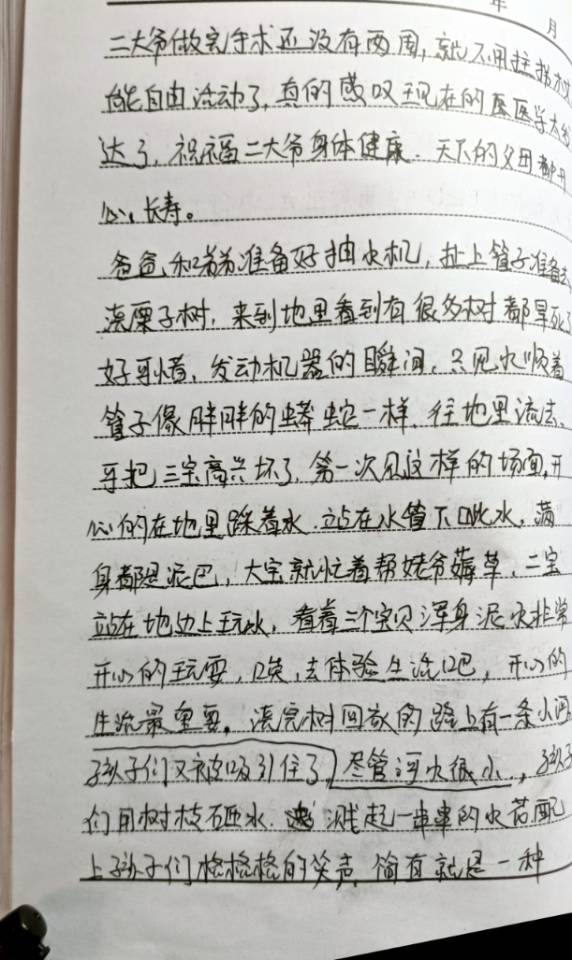 年 月
二大爷做完手术还没有两周,就不用拄拐杖
能自由活动了,真的感叹现在的医医学太发
达了,祝福二大爷身体健康.天下的父母都开
心,长寿。
爸爸和爷爷准备好抽水机,扯上管子准备去
浇栗子树,来到地里看到有很多树都旱死了
好可惜,发动机器的瞬间,只见水顺着
管子像胖胖的蟒蛇一样,往地里流去,
可把三宝高兴坏了,第一次见这样的场面,开
心的在地里踩着水.站在水管下呲水,满
身都是泥巴,大宝就忙着帮姥爷薅草,二宝
站在地边上玩水,看着三个宝贝浑身泥水非常
开心的玩耍,唉,去体验生活吧,开心的
生活最重要。浇完树回家的路上有一条小河
孩子们又被吸引住了,尽管河水很小,孩子
们用树枝砸水.溅起一串串的水花配
上孩子们格格格的笑声,偷有就是一种